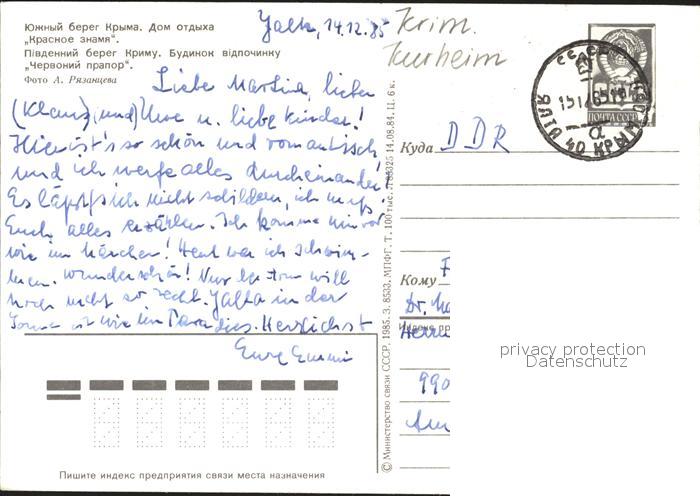 Южный берег Крыма. Дом отдыха
„Красное знамя“.
Південний берег Криму. Будинок відпочинку
„Червоний прапор“.
Фото А. Рязанцева
Jalta, 14.12.85
Krim.
Kurheim
Liebe Martina, lieber
(Klaus), und Uwe u. liebe Kinder!
Hier ist's so schön und romantisch
und ich werfe alles durcheinander.
Es läßt sich nicht schildern, ich muß
Euch alles erzählen. Ich komme mir vor
wie im Märchen! Heut war ich schwim-
men. wunderschön! Nur der will
noch nicht so recht. Jalta in der
Sonne ist wie im Paradies. Herzlichst
Eure
ПОЧТА СССР
ЯЛТА
Куда DDR
Кому
Dr.
Индекс пр
990
© Министерство связи СССР. 1985. З. 8533. МПФГ. Т. 100 тыс. 14.08.84. Ц. 6 к.
privacy protection
Datenschutz
Пишите индекс предприятия связи места назначения